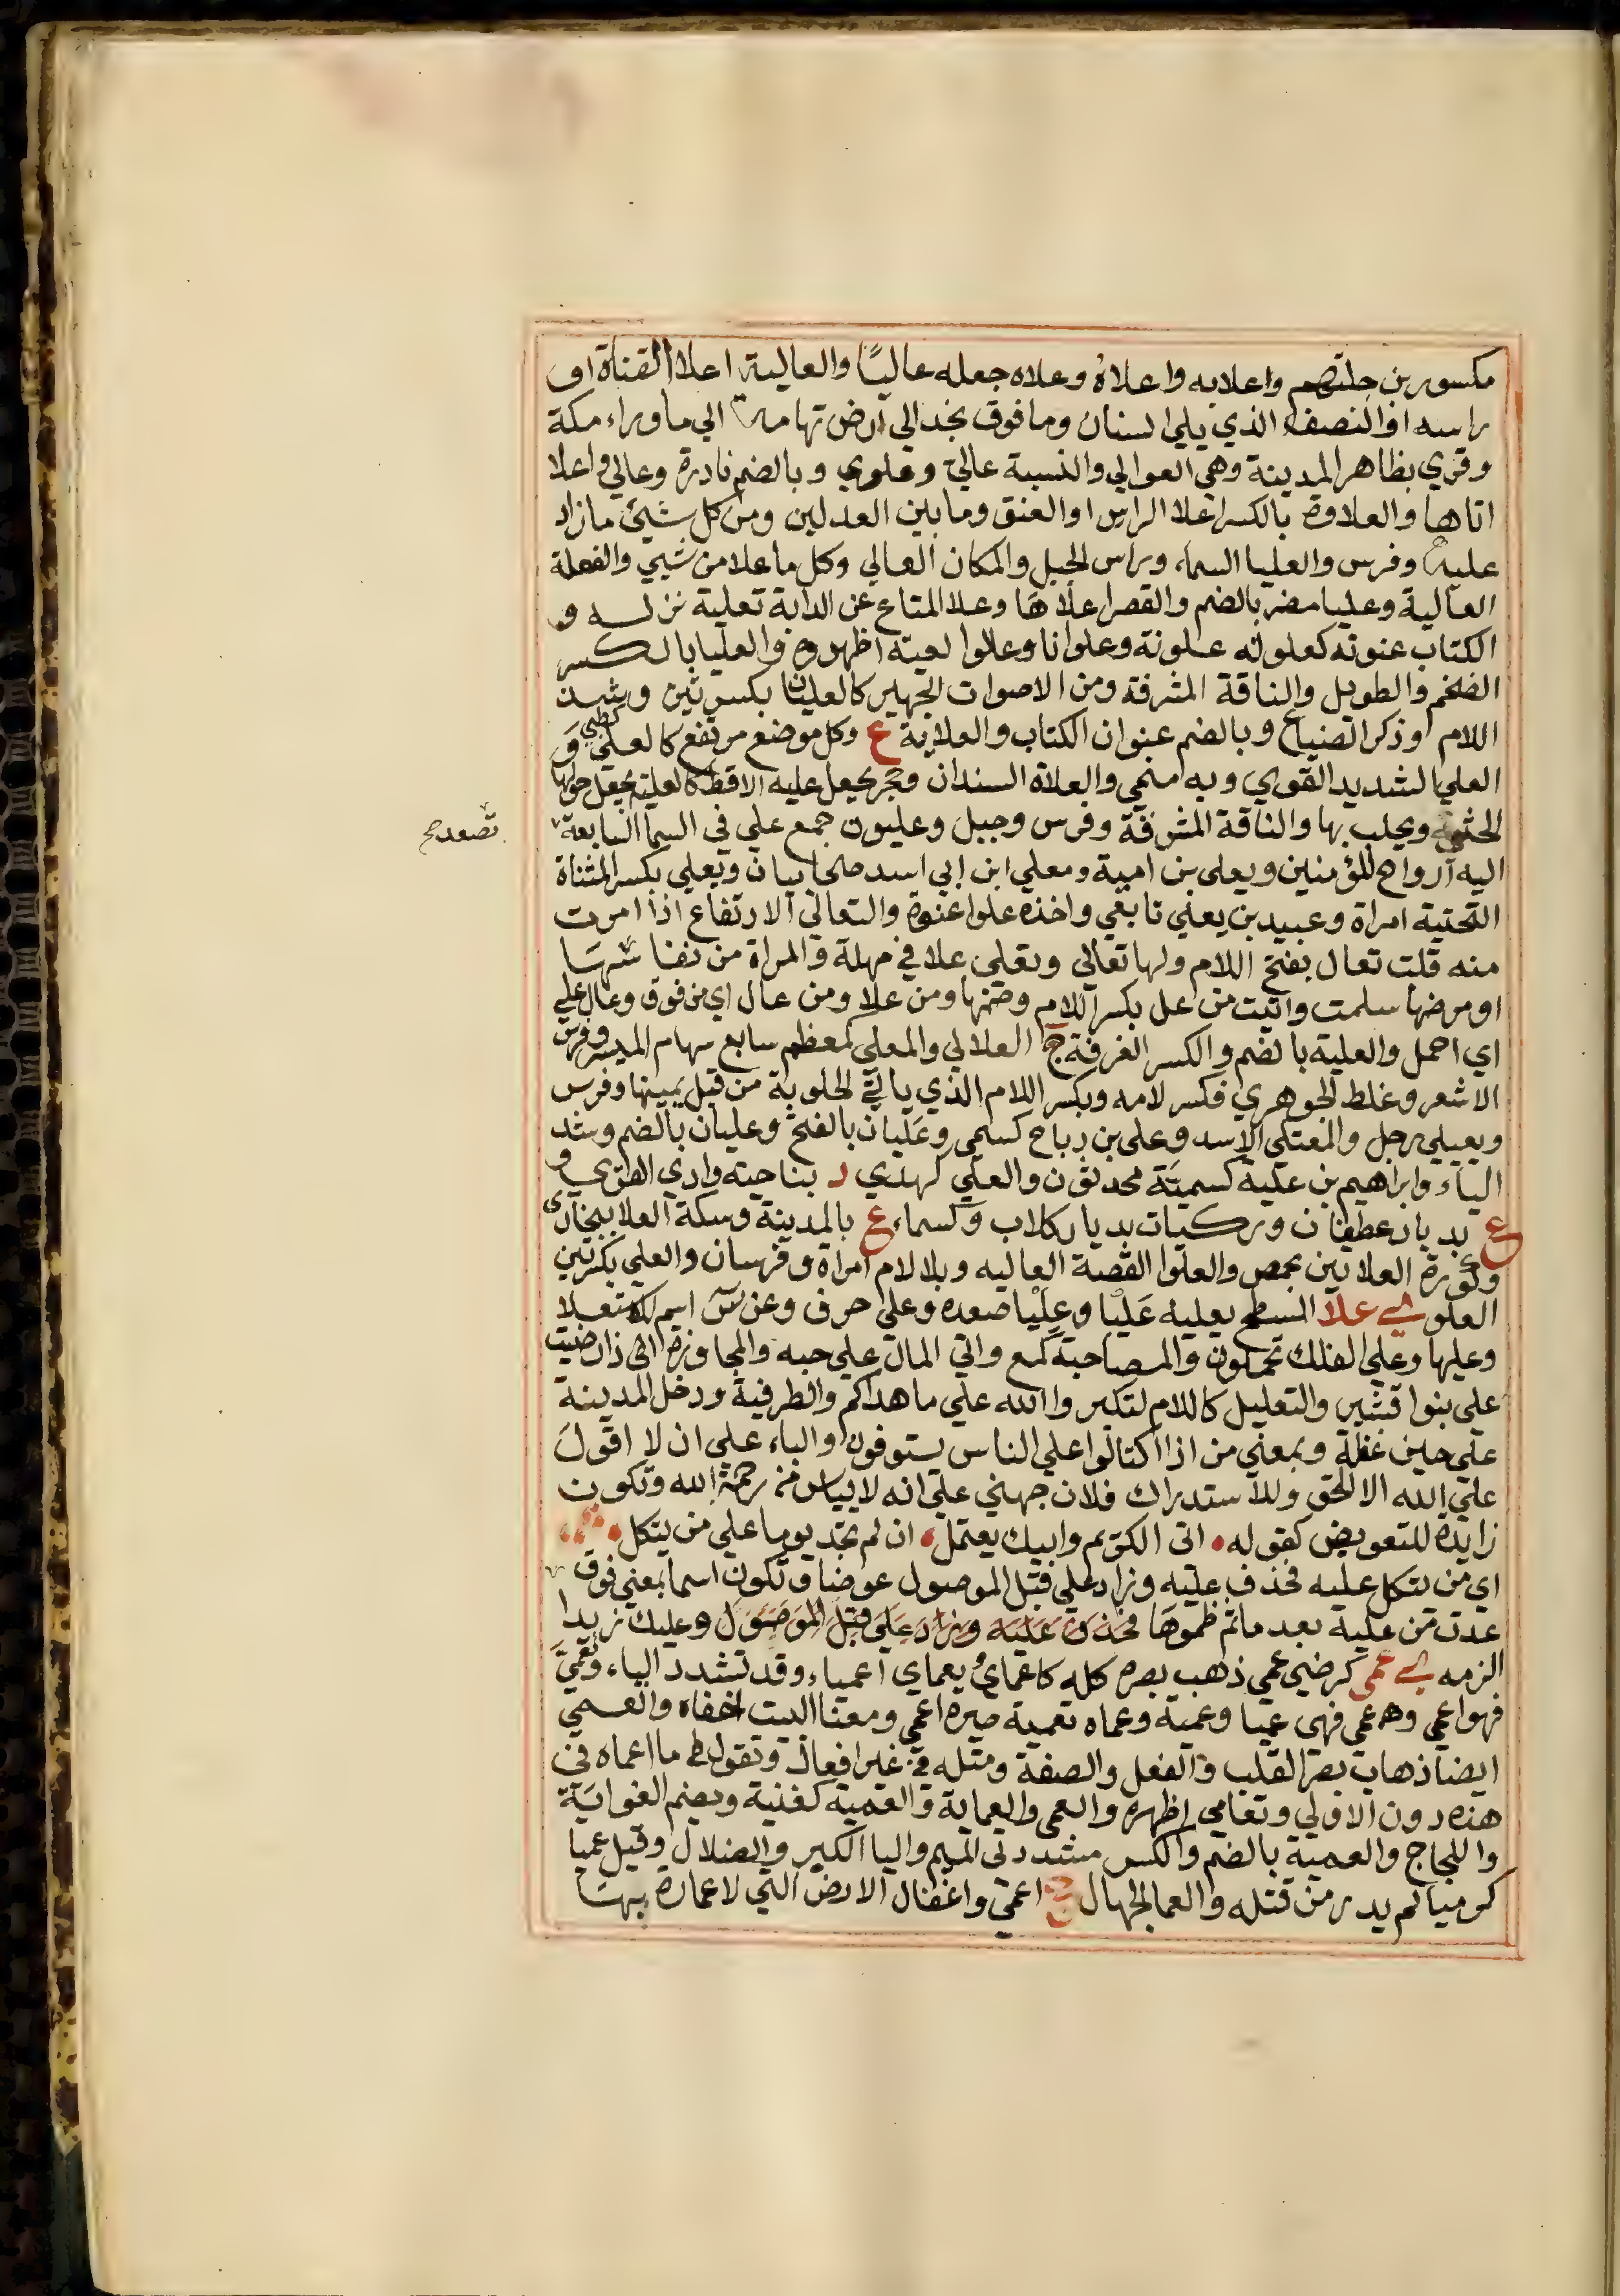 مكسورين جلتهم واعلابه واعلاه وعلاه جعله عاليًا والعالية اعلا القناة او
راسه او النصف الذي يلي السنان وما فوق نجد الى ارض تهامة الي ماوراء مكة
وقري بظاهر المدينة وهي العوالي والنسبة عالي وعلوي وبالضم نادرة وعالي واعلا
اتاها والعلاوة بالكسر اعلا الراس او العنق وما بين العدلين ومن كل شيئ ما زاد
عليه وفرس والعليا السماء وراس الجبل والمكان العالي وكل ما علا من شيي والفعلة
العالية وعليا مضر بالضم والقصر اعلاها وعلا المتاع عن الدابة تعلية نزله و
الكتاب عنونه كعلونه علونة وعلوانا وعالوا لعيته اظهروه والعليا بالكسر
الضخم والطويل والناقة المشرفة ومن الاصوات الجهير كالعليان بكسرتين وشد
اللام او ذكر الضباع وبالضم عنوان الكتاب والعلاية ع وكل موضع مرتفع كالعلي كظبي و
العلي الشديد القوي وبه سمي والعلاة السندان وحجر يجعل عليه الاقط كالعلية يجعل حولها
الحثو ويحلب بها والناقة المشرفة وفرس وجبل وعليون جمع علي في السما السابعة
تصعد صح
اليه ارواح المؤمنين ويعلى بن امية ومعلي ابن ابي اسد صحابيان وتعلي بكسر المثناة
التحتية امراة وعبيد بن يعلي تابعي واخذه علوا عنوة والتعالي الارتفاع اذا امرت
منه قلت تعال بفتح اللام ولها تعالي وتعلي علا في مهلة والمراة من نفاسها
او مرضها سلمت واتيت من عل بكسر اللام وضمها ومن علا ومن عال اي من فوق وعال علي
اي احمل والعلية بالضم والكسر الغرفة ج العلالي والمعلي كمعظم سابع سهام الميسر وفرس
الاشعر وغلط الجوهري فكسر لامه وبكسر اللام الذي ياتي الحلوبة من قبل يمينها وفرس
ويعيلي رجل والمعتلي الاسد وعلي بن رباح كسمي وعليان بالفتح وعليان بالضم وشد
الياء وابراهيم بن علية كسمية محدثون والعلي كهدي د بناحية وادي القري و
ع بديار غطفان وركيات بديار كلاب وكسماء ع بالمدينة وسكة العلا ببخارى
وكورة العلابين بحمص والعلوا القصة العاليه وبلا لام امراة وفرسان والعلي بكسرتين
العلو ي علا السطح يعليه عَلْيا وعِلْيا صعده وعلى حرف وعن س اسم للاستعلا
وعليها وعلي الفلك تحملون والمصاحبة كمع واتي المال علي حبه والمجاوزة اذا رضيت
علي بنوا قشير والتعليل كاللام لتكبروا الله علي ما هداكم والظرفية ودخل المدينة
علي حين غفلة وبمعني من اذا اكتالوا علي الناس يستوفون والباء علي ان لا اقول
علي الله الا الحق وللاستدراك فلان جهني علي انه لا ييأس من رحمة الله وتكون
زايدة للتعويض كقوله • اتى الكريم وابيك يعتمل • ان لم يجد يوما علي من يتكل •
اي من يتكل عليه فحذف عليه وزاد علي قبل الموصول عوضا وتكون اسما بمعني فوق
عدت من عليه بعد ما تم ظموها فحذف عليه وزاد علي قبل الموصول وعليك زيدا
الزمه ي عمي كرضي عمي ذهب بصره كله كاعماي يعماي اعمياء وقد تشدد الياء وتعمي
فهو اعمي وهو عمي فهي عميا وعمية وعماه تعمية صيره اعمي ومعنا البيت اخفاه والعمي
ايضا ذهاب بصر القلب والفعل والصفة ومثله في غير افعال وتقول ما اعماه في
هذه دون الاولي وتعامي اظهره والعمي والعماية والعمية كغنية وبضم الغواية
واللجاج والعمية بالضم والكسر مشددتي الميم واليا الكبر والضلال وقتيل عميا
كرميا لم يدر من قتله والعما الجهال ج اعمي واغفال الارض التي لا عمارة بها